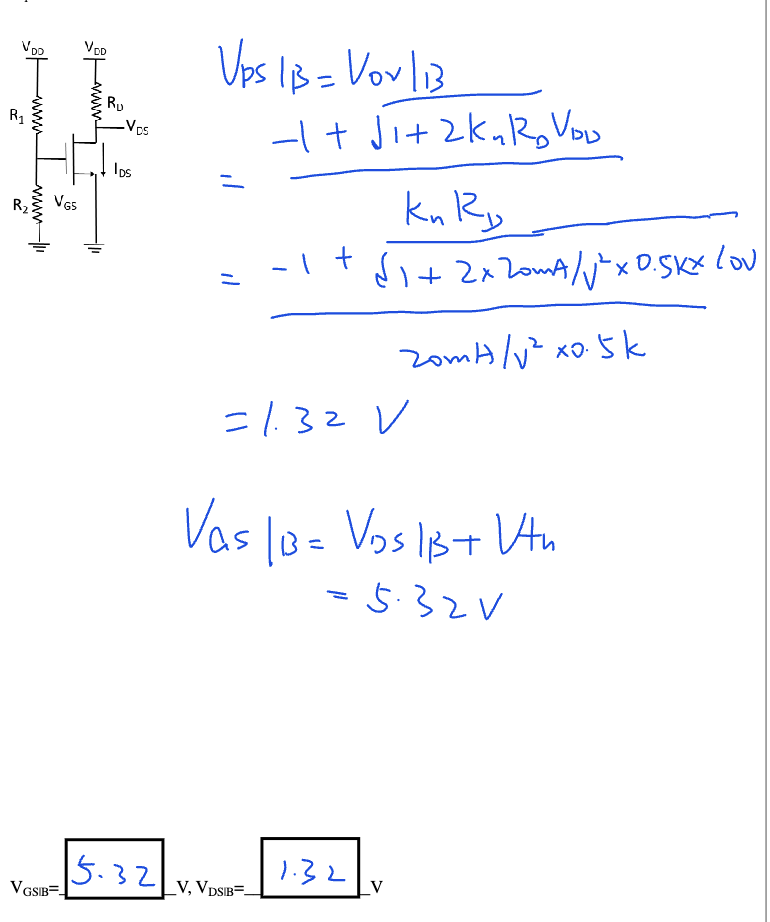 V_DD V_DD
R_1 R_D
V_DS
I_DS
R_2 V_GS
V_DS|B = V_ov|B
= (-1 + √(1 + 2K_n R_D V_DD)) / (K_n R_D)
= (-1 + √(1 + 2x20mA/V² x 0.5Kx 10V)) / (20mA/V² x0.5k)
= 1.32 V
V_GS|B = V_DS|B + V_tn
= 5.32 V
V_GS|B= 5.32 V, V_DS|B= 1.32 V